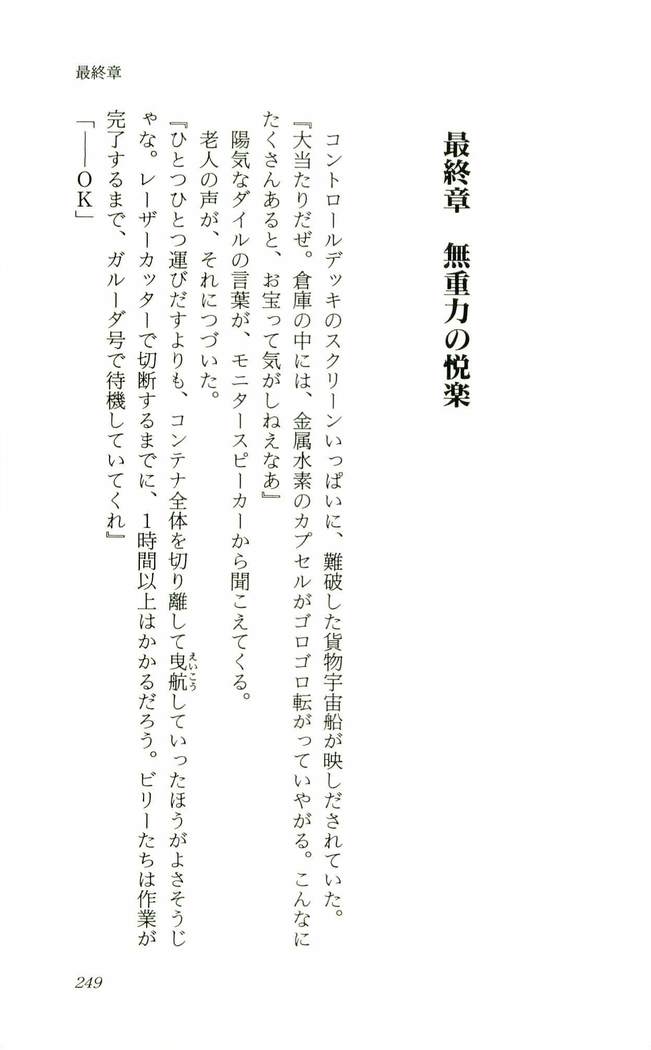 最終章
最終章　無重力の悦楽
コントロールデッキのスクリーンいっぱいに、難破した貨物宇宙船が映しだされていた。
『大当たりだぜ。倉庫の中には、金属水素のカプセルがゴロゴロ転がっていやがる。こんなに
たくさんあると、お宝って気がしねえなあ』
陽気なダイルの言葉が、モニタースピーカーから聞こえてくる。
老人の声が、それにつづいた。
『ひとつひとつ運びだすよりも、コンテナ全体を切り離して曳航えいこうしていったほうがよさそうじ
ゃな。レーザーカッターで切断するまでに、１時間以上はかかるだろう。ビリーたちは作業が
完了するまで、ガルーダ号で待機していてくれ』
「――ＯＫ」
249